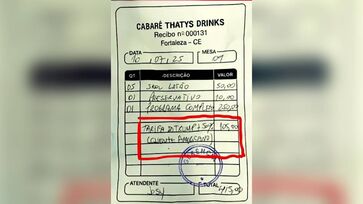 CABARÉ THATYS DRINKS
Recibo nº 000131
Fortaleza - CE
DATA MESA
10, 07, 25 04
QT DESCRIÇÃO VALOR
05 SKOL LATÃO 50,00
01 PRESERVATIVO 10,00
01 PROGRAMA COMPLETO 250,00
TARIFA DO TRUMP + 50% 105,00
(CLIENTE AMERICANO)
ATENDENTE TOTAL
415,00